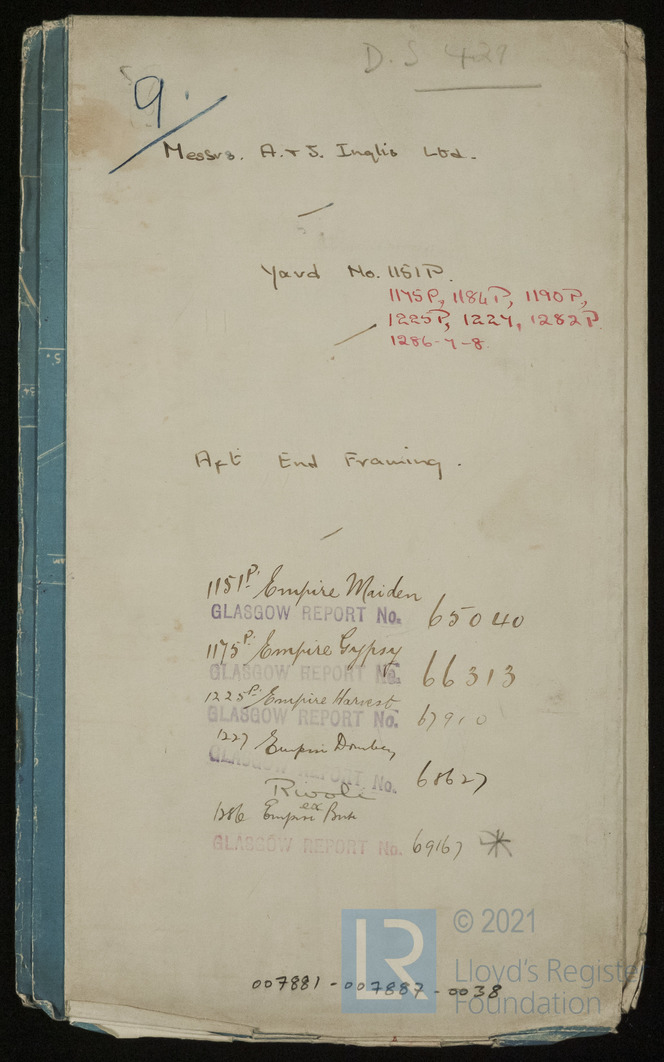 D.S 429
9.
Messrs. A. & J. Inglis Ltd.
Yard No. 1151P.
1175P, 1184P, 1190P,
1225P, 1227, 1282P.
1286-7-8.
Aft End Framing.
1151P. Empire Maiden
GLASGOW REPORT No. 65040
1175P. Empire Gypsy
GLASGOW REPORT No. 66313
1225P. Empire Harvest
GLASGOW REPORT No. 67910
1227 Empire
GLASGOW REPORT No. 68627
Rivoli
ex
1286 Empire
GLASGOW REPORT No. 69167 *
LR © 2021
Lloyd's Registe
Foundation
007881-007887-0038